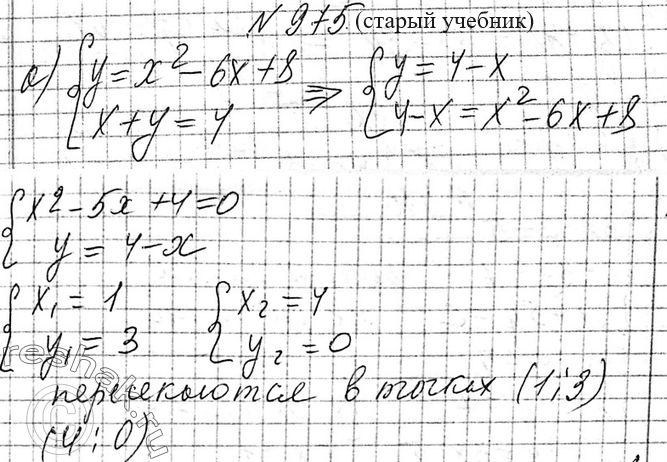 N 975 (старый учебник)
а) { y = x² - 6x + 8 ⇒ { y = 4 - x
x + y = 4 4 - x = x² - 6x + 8
{ x2 - 5x + 4 = 0
y = 4 - x
{ x₁ = 1 { x₂ = 4
y₁ = 3 y₂ = 0
пересекаются в точках (1; 3)
(4; 0)
reshak.ru